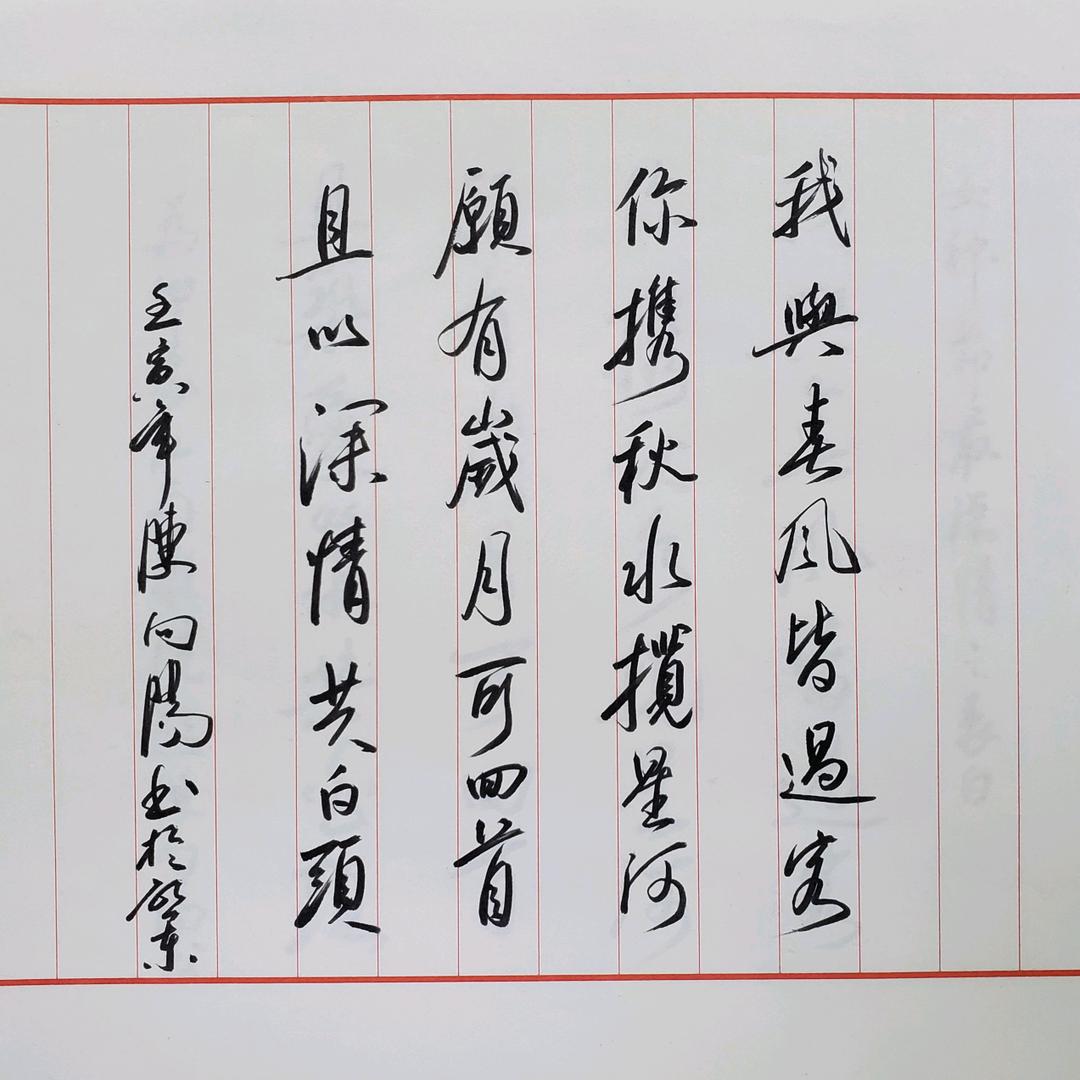 我與春風皆過客
你攜秋水攬星河
願有歲月可回首
且以深情共白頭
壬寅年陳向陽書於